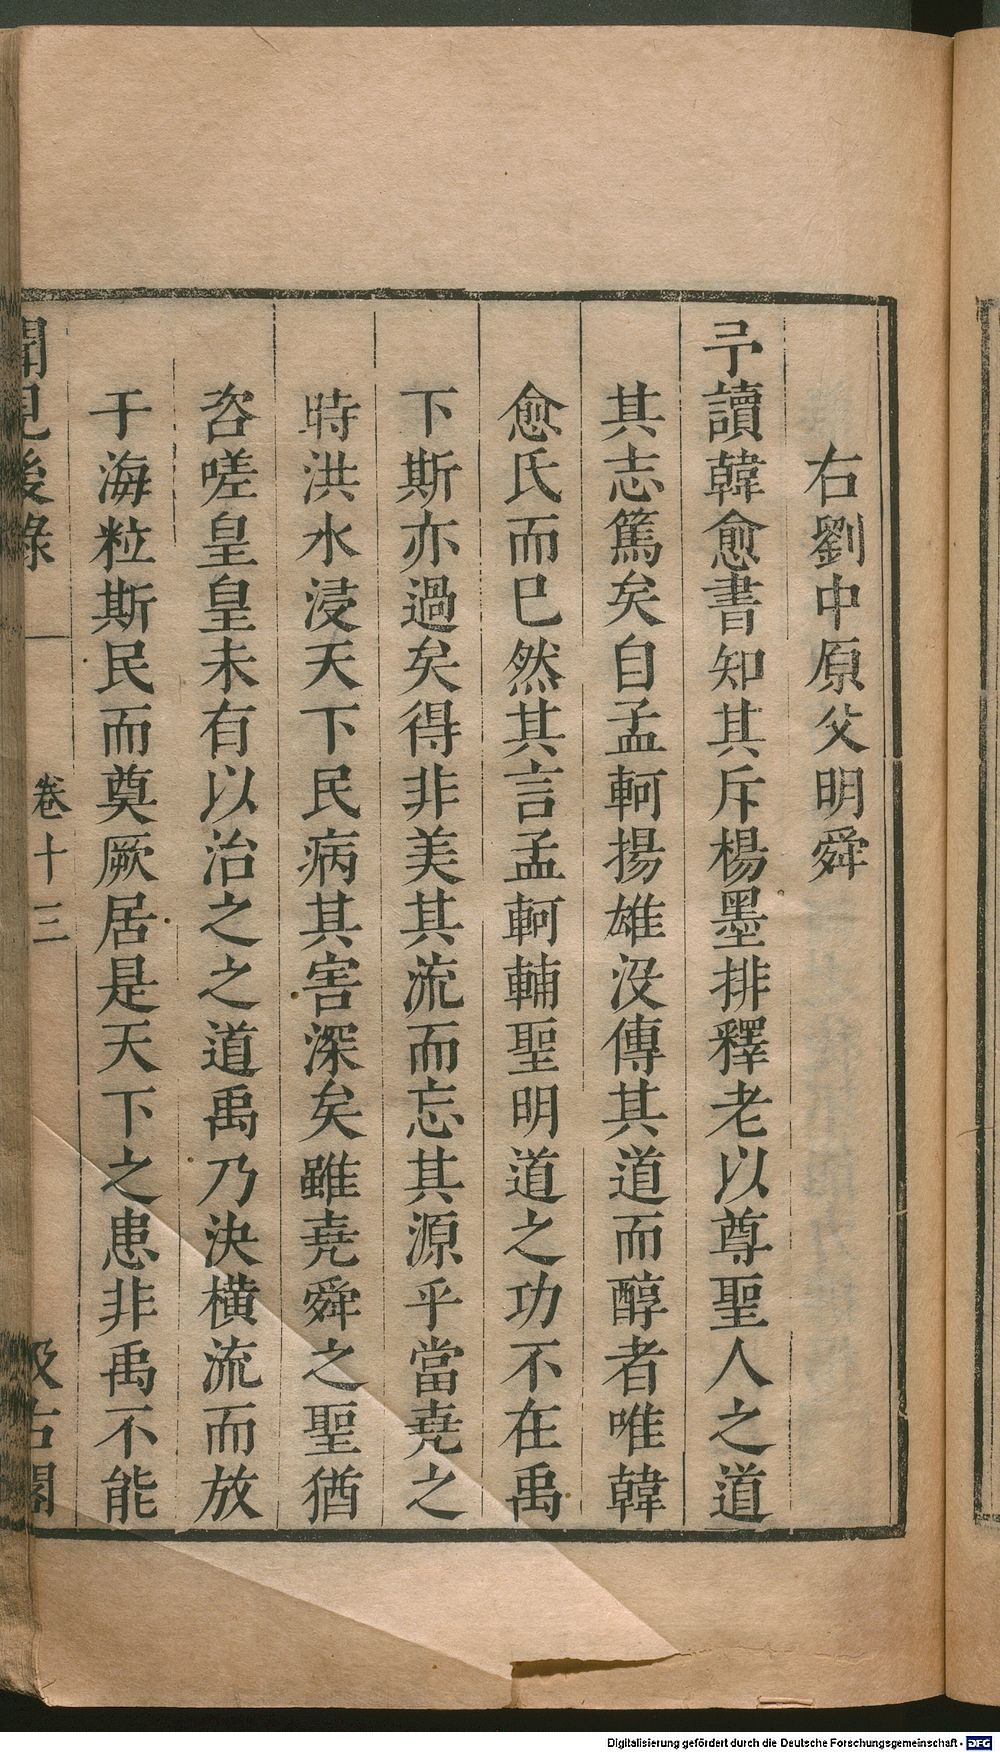 右劉中原父明舜
予讀韓愈書知其斥楊墨排釋老以尊聖人之道
其志篤矣自孟軻揚雄没傳其道而醇者唯韓
愈氏而巳然其言孟軻輔聖明道之功不在禹
下斯亦過矣得非美其流而忘其源乎當堯之
時洪水浸天下民病其害深矣雖堯舜之聖猶
咨嗟皇皇未有以治之之道禹乃決橫流而放
于海粒斯民而奠厥居是天下之患非禹不能
聞見後錄 卷十三 汲古閣
Digitalisierung gefördert durch die Deutsche Forschungsgemeinschaft - DFG